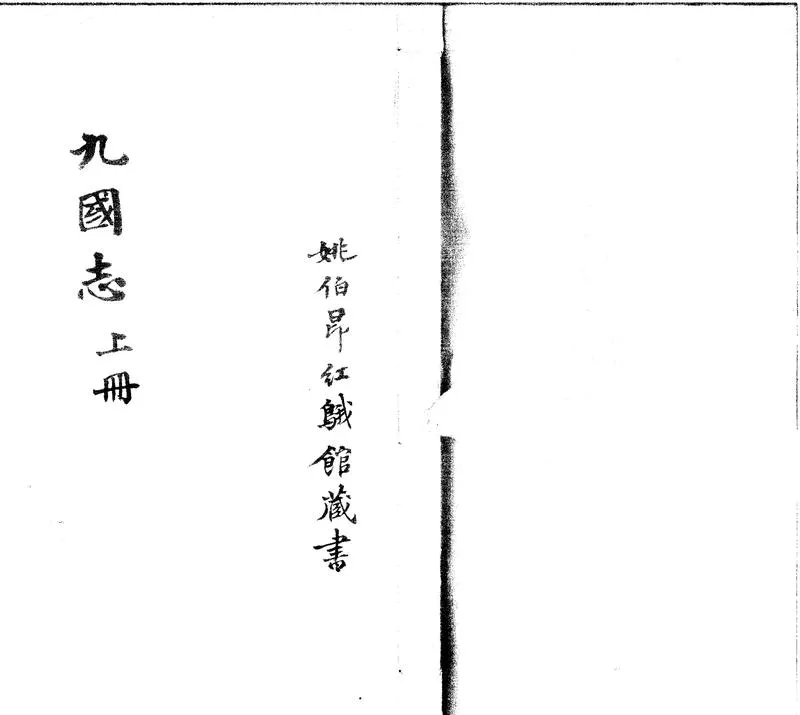 姚伯昂紅䳗館藏書
九國志 上冊